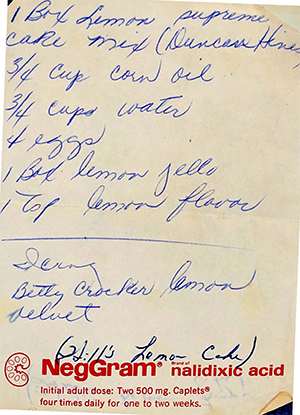 1 Box Lemon supreme
cake mix (Duncan Hines
3/4 cup corn oil
3/4 cups water
4 eggs
1 Box lemon jello
1 Tsp lemon flavor
Icing
Betty Crocker lemon
velvet
(Hill's Lemon Cake)
NegGram® Brand of nalidixic acid
Initial adult dose: Two 500 mg. Caplets®
four times daily for one to two weeks.